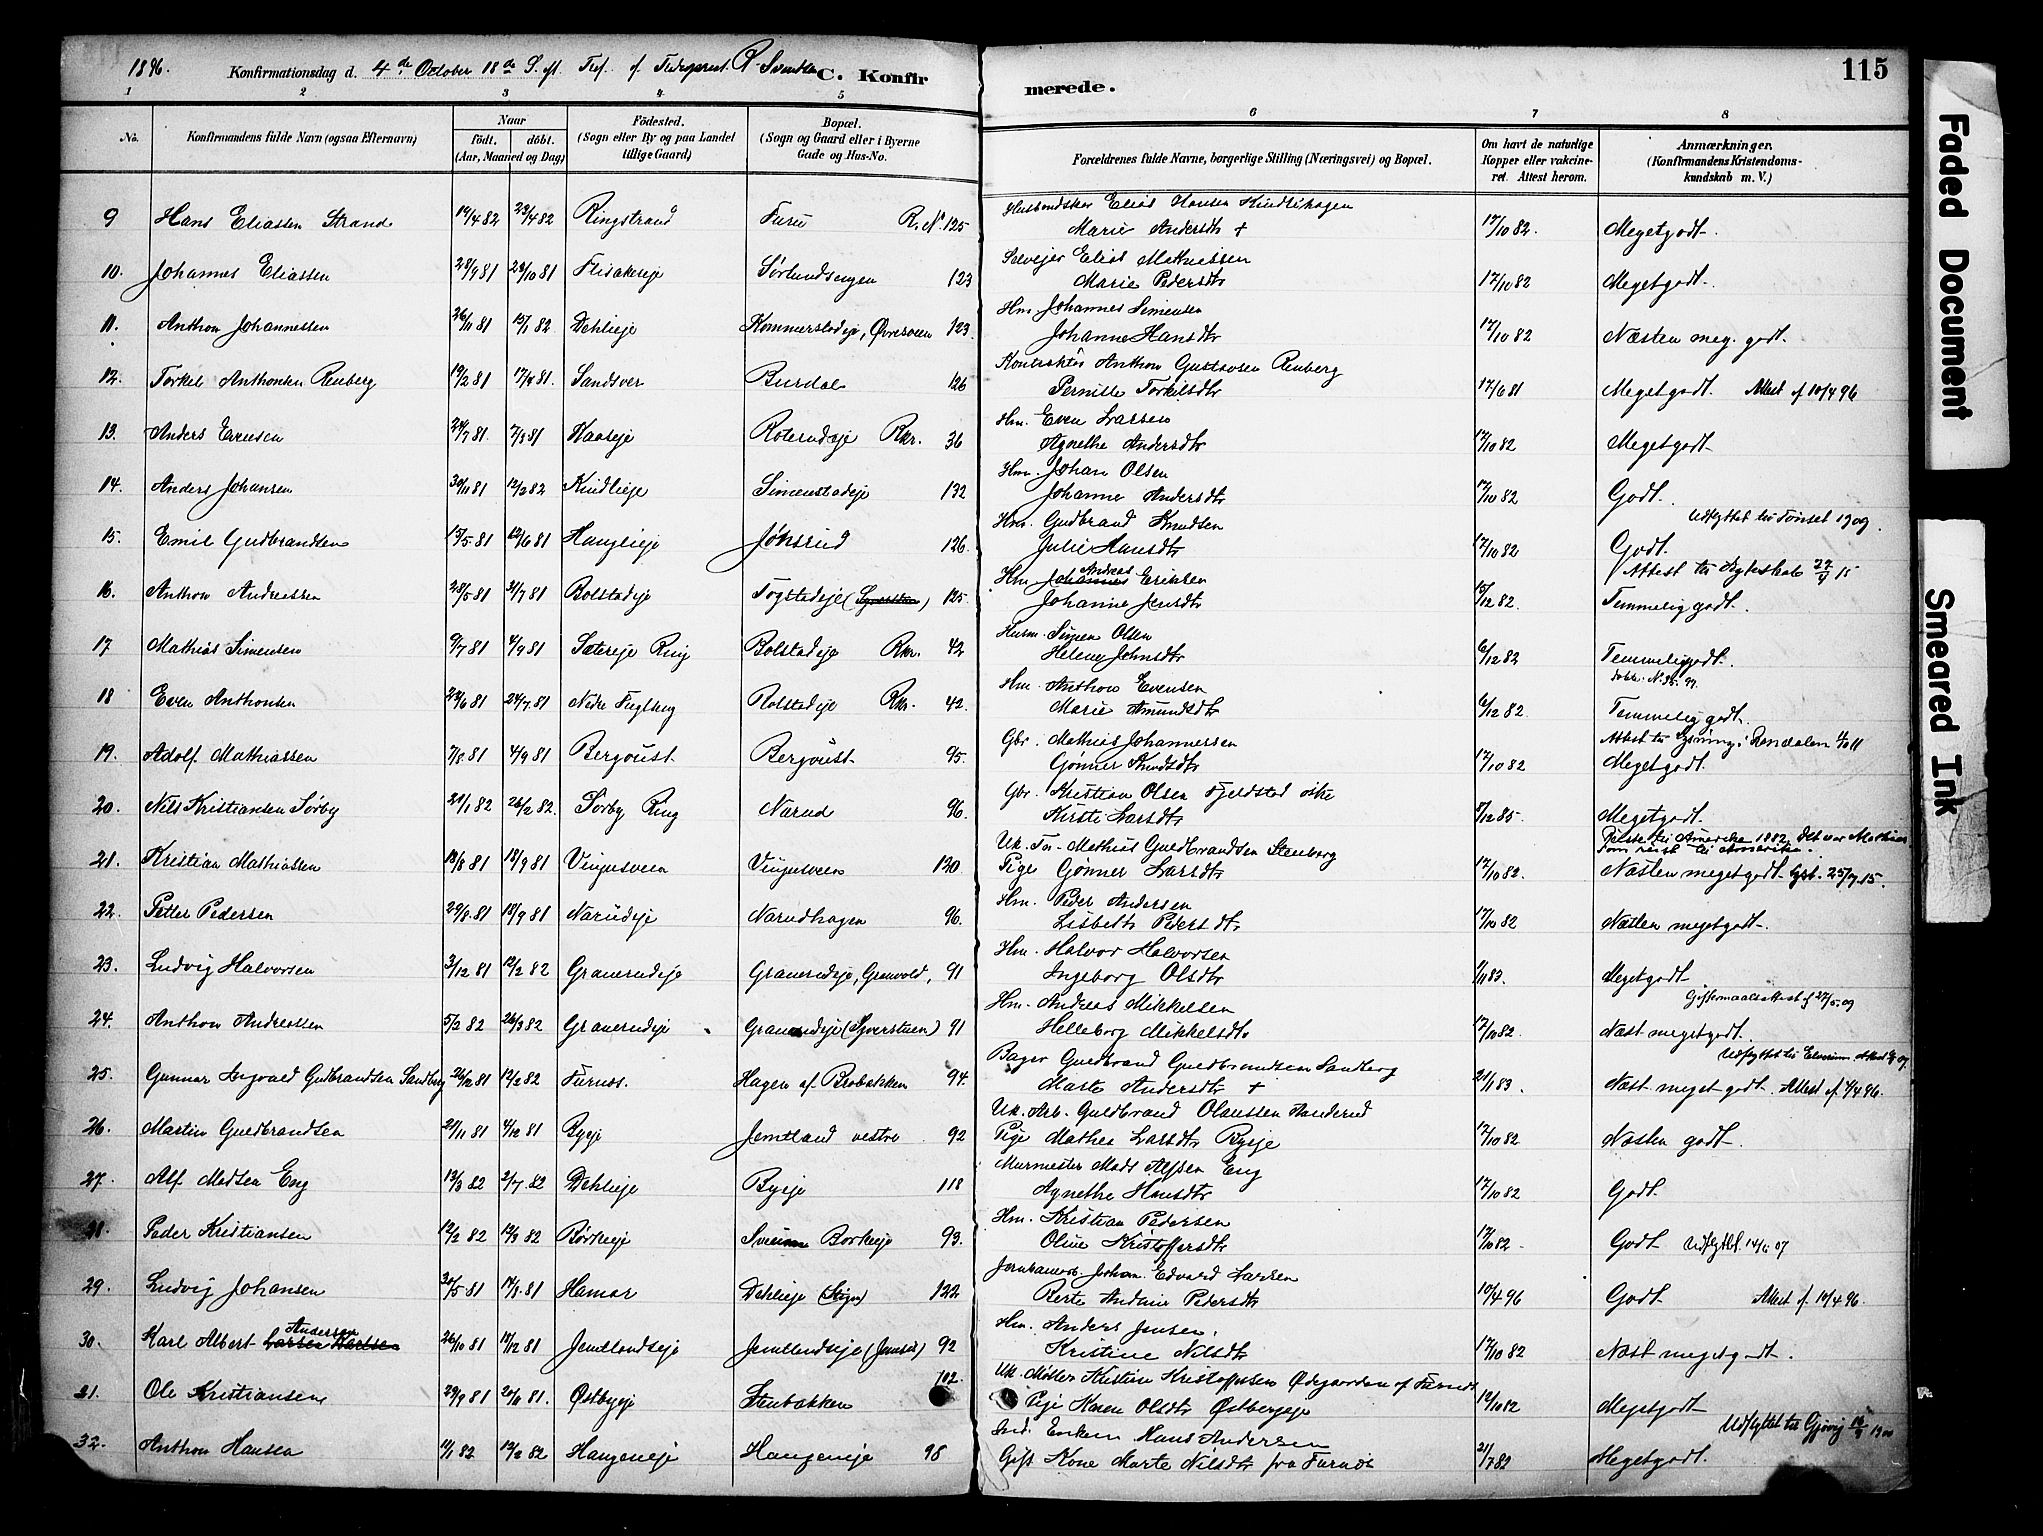 1896. Konfirmationsdag d. 4de October 18de S. eft. Tref. C. Konfir
merede. 115
1 2 3 4 5 6 7 8
No. Konfirmandens fulde Navn (ogsaa Efternavn) Naar født. døbt. (Aar, Maaned og Dag) Fødested. (Sogn eller By og paa Landet tillige Gaard) Bopæl. (Sogn og Gaard eller i Byerne Gade og Hus-No. Forældrenes fulde Navne, borgerlige Stilling (Næringsvei) og Bopæl. Om havt de naturlige Kopper eller vakcineret. Attest herom. Anmærkninger. (Konfirmandens Kristendomskundskab m. V.)
9 Hans Eliassen Strand 19/4 82 23/4 82 Ringstrand Furu R. No. 125 Elias Hansen Kindlihagen
Marie Andersdtr + 17/10 82. Megetgodt.
10. Johannes Eliassen 28/9 81 Flisakereje Sørlundsengen 123 Selvejer Elias Mathiessen
Marie Pedersdtr 17/10 82 Megetgodt.
11. Anthon Johannessen 26/11 81 15/1 82 Dehlieje Kommerstadeje, Øvresveen 123 Hm. Johannes Simensen
Johanne Hansdtr 17/10 82 Næsten meg. godt.
12. Torkel Anthonsen Renberg 19/2 81 17/4 81. Sandsver Burdal 126 Anthon Gustavsen Renberg
Pernille Torkilsdtr 17/6 81 Megetgodt. Attest f. 10/4 96
13. Anders Evensen 24/7 81. 7/8 81 Kaaseje Roterudeje Rkr. 36 Hm. Even Larsen
Agnethe Andersdtr 17/10 82 Megetgodt.
14. Anders Johansen 30/11 81 12/2 82 Kindlieje Simenstadeje 132 Hm. Johan Olsen
Johanne Andersdtr 17/10 82 Godt.
Udflyttet til Tønset 1909.
15. Emil Gudbrandsen 15/5 81 12/6 81 Hauglieje Jøksrud 126. Hm. Gudbrand Knudsen
Julie Hansdtr 17/10 82 Godt.
16. Anthon Andreassen 28/5 81 31/7 81 Bolstadeje Togstadeje 125 Hm. Johannes Andreas Eriksen
Johanne Jensdtr 15/12 82. Temmelig godt.
17 Mathias Simensen 9/7 81 4/9 81 Sætereje Ring Bolstadeje Rkr. 42 Husm. Simen Olsen
Helene Johnsdtr 6/12 82 Temmeliggodt.
18 Even Anthonsen 24/6 81 24/7 81 Nedre Fuglseng Bolstadeje Rkr. 42. Hm. Anthon Evensen
Marie Amundsdtr 6/12 82 Temmelig godt.
Rendalen
19. Adolf Mathiassen 7/8 81 4/9 81 Bergoust Bergoust 95. Gbr. Mathias Johannessen
Gønner Knudsdtr 17/10 82 Megetgodt.
20. Nils Kristiansen Sørby 21/1 82 26/2 82. Sørby Ring Narud 96. Gbr. Kristian Olsen Fjeldstad
Kirsti Larsdtr /12 85. Megetgodt.
Rejste til Amerika 1882, det var Mathias
som rejst til Amerika.
21. Kristian Mathiassen 13/8 81 18/9 81 Vingusveen Vingusveen 120 Uk. Mathias Guldbrandsen Stenberg
Pige Gønner Larsdtr 17/10 82. Næsten megetgodt.
22. Petter Pedersen 29/8 81 18/9 81 Narudeje Narudhagen 96. Hm. Peder Andersen
Lisbeth Pedersdtr 17/10 82 Næsten megetgodt.
23. Ludvig Halvorsen 3/12 81 12/2 82 Graverudeje Graverudeje, Grønvold, 91 Hm. Halvor Halvorsen
Ingeborg Olsdtr 83. Megetgodt
24. Anthon Andreassen 5/2 82 26/3 82 Graverudeje Graverudeje (Syversteen) 91 Hm. Andreas Mikkelsen
Helleborg Mikkelsdtr 17/10 82. Næst megetgodt.
25. Gunnar Ingvald Gudbrandsen Sandberg 26/12 81 12/2 82 Furnes. Hagen af Brobakken 94. Bager Guldbrand Guldbrandsen Sandberg
Marte Andersdtr + 21/1 83. Næst meget godt. Attest f. 9/4 96.
26. Martin Guldbrandsen 27/11 81 4/12 81 Byeje Jemtland vestre 92 Uk. Arb. Guldbrand Olaussen
Pige Mathea Larsdtr Byeje 17/10 82 Næsten godt.
27. Alf Madsen Eng 13/3 82 2/7 82 Dehlieje Byeje 118 Murmester Mads Alfsen Eng
Agnethe Hansdtr 17/10 82 Godt.
28. Peder Kristiansen 12/2 82 12/3 82 Børkeje Borkeje 93. Hm. Kristian Pedersen
Oline Kristoffersdtr 17/10 82. Godt Udflyttet.
29. Ludvig Johansen 30/5 81 14/8 81 Hamar Dehlieje (Stign) 122 Johan Edvard Larsen
Berte Andine Pedersdtr 10/4 96 Godt Attest f. 10/4 96.
30. Karl Albert Andersen 26/10 81 18/12 81 Jemtlandseje Jemtlandseje 92 Hm. Anders Jensen.
Kristine Nilsdtr 17/10 82 Næst megetgodt.
31. Ole Kristiansen 29/9 81 20/11 81. Østbyeje Stenbakken 102. Uk. Møller Kristian Kristoffersen Ødegaarden af Furnes
Pige Karen Olsdtr Østbyeje 17/10 82 Megetgodt.
Udflyttet til Gjøvig
32. Anthon Hansen 11/1 82 12/2 82 Haugeneje Haugeneje 98 Ind. Enkem. Hans Andersen
Gift Kone Marte Nilsdtr fra Furnes 21/7 82 Megetgodt.
Faded Document
Smeared Ink